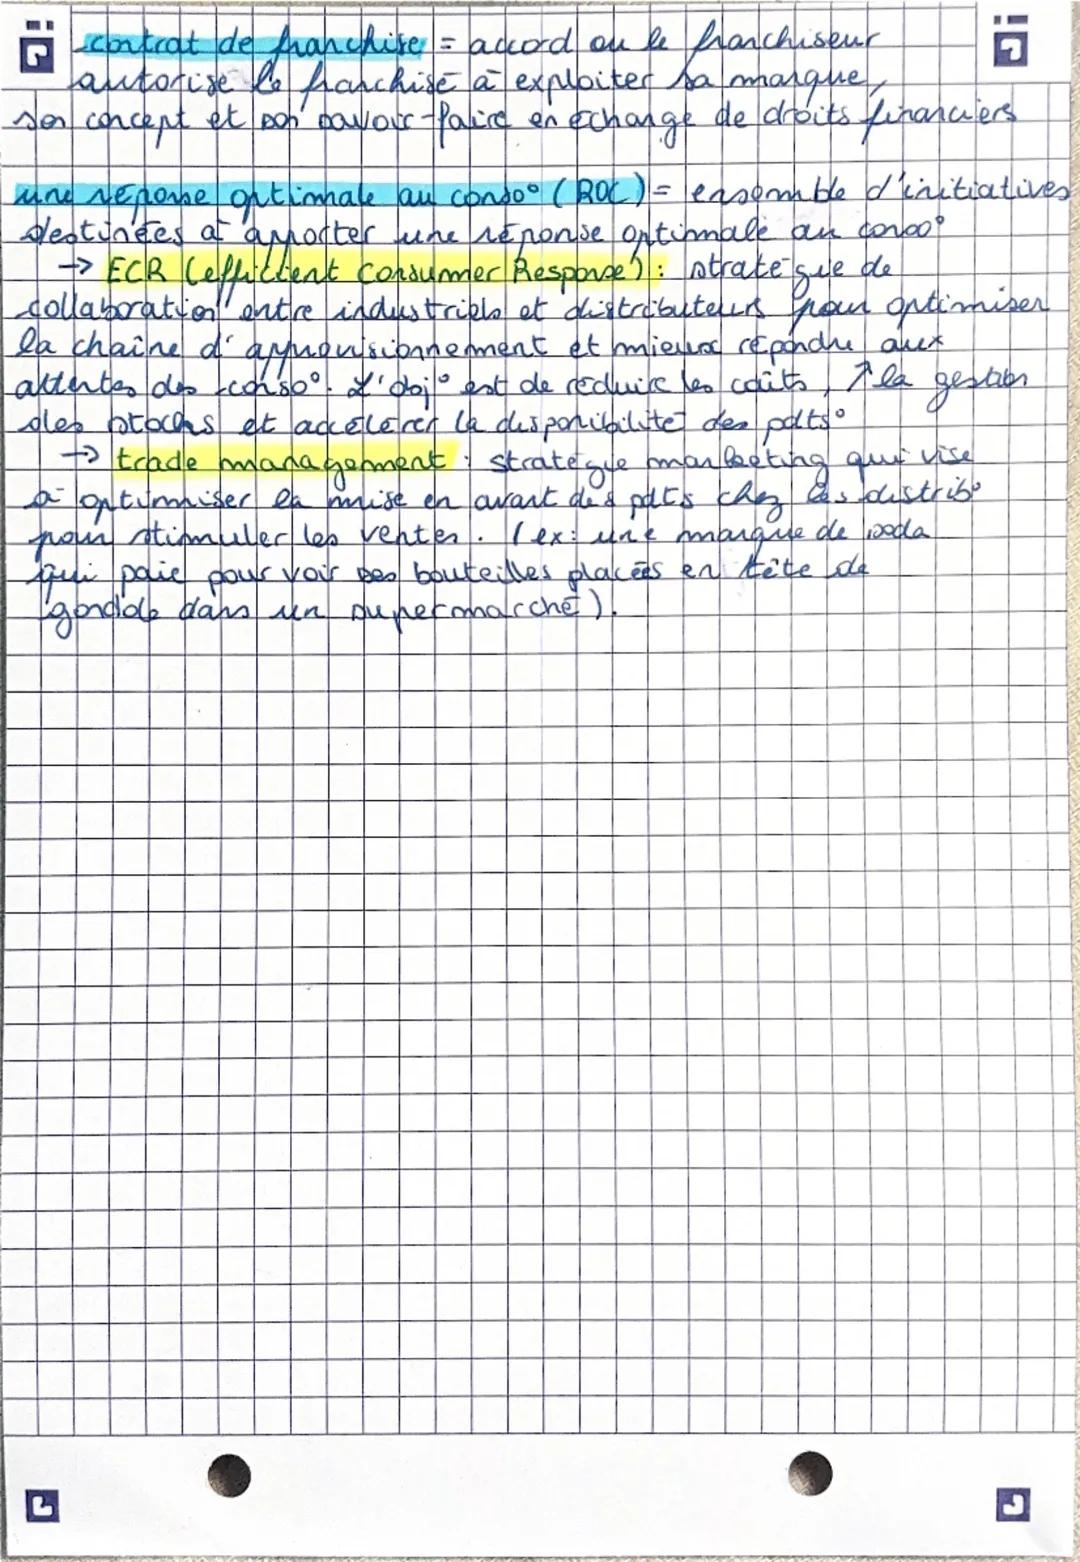 contrat de franchise = accord ou le franchiseur
autorise le franchisé à exploiter sa marque,
son concept et son savoir-faire en échange de droits financiers
une réponse optimale au conso° (ROC) = ensemble d'initiatives
destinées à apporter une réponse optimale au conso°
→ ECR (efficient Consummer Response) : stratégie de
collaboration entre industriels et distributeurs pour optimiser
la chaîne d'approvisionnement et mieux répondre aux
attentes des conso°. L'obj° est de réduire les coûts, ↗ la gestion
des stocks et accélérer la disponibilité des pdts°
→ trade management : stratégie marketing qui vise
à optimiser la mise en avant des pdts chez les distrib°
pour stimuler les ventes. (ex: une marque de soda
qui paie pour voir ses bouteilles placées en tête de
gondole dans un supermarché).